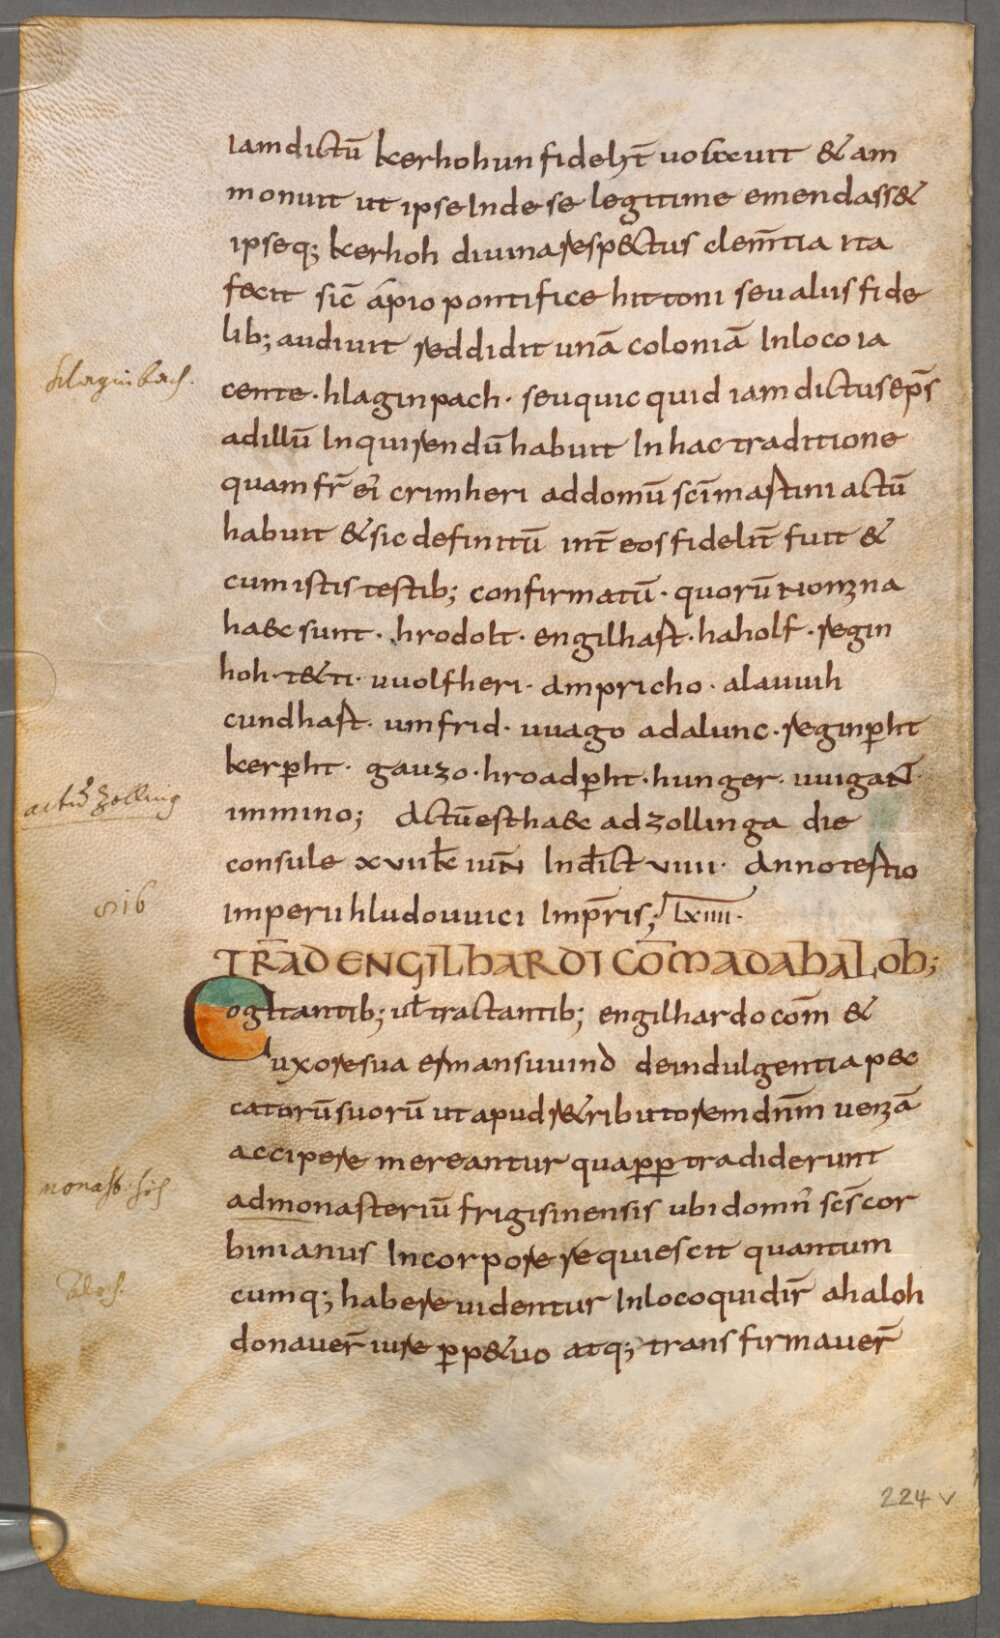 iam dictū kerhohun fideliт̄ vocavit & am
monuit ut ipse Inde se legitime emendass&
ipseq; kerhoh divina resp&ctus clem̄tia ita
fecit sic̄ a pio pontifice hittoni seu aliis fide
lib; audivit reddidit unā coloniā In loco ia
cente · hlaginpach · seu quicquid iam dictus ep̄s
ad illū Inquirendū habuit In hac traditione
quam fr̄ ei crimheri ad domū sc̄i mastini actū
habuit & sic definitū int̄ eos fidelit̄ fuit &
cum istis testib; confirmatū · quorū nomina
haec sunt · hrodolt · engilhast · haholf · regin
hoh · t&ti · uuolfheri · ampricho · alauuih
cundhast · umfrid · uuago adalunc · reginp̄ht
kerp̄ht · gauzo · hroadp̄ht · hunger · uuigant
immino; Actū est haec ad zollinga die
consule xviii k̄ iuń Indict viiii · Anno tertio
imperii hludouuici Imp̄ris; Lxiiii ·
TRAD ENGILHARDI COM AD AHALOH;
Cogitantib; ut̄ tractantib; engilhardo com̄ &
uxore sua ermansuuind de indulgentia pec
catorū suorū ut apud r&ributorem dnm̄ veniā
accipere mereantur quap̄p̄ tradiderunt
ad monasteriū frigisinensis ubi domn̄ sc̄s cor
binianus In corpore requiescit quantum
cumq; habere videntur In loco qui dir̄ ahaloh
donaver̄ iure p̄p&uo atq; transfirmaver̄
hlaginbach.
actū Zolling
816
224 v